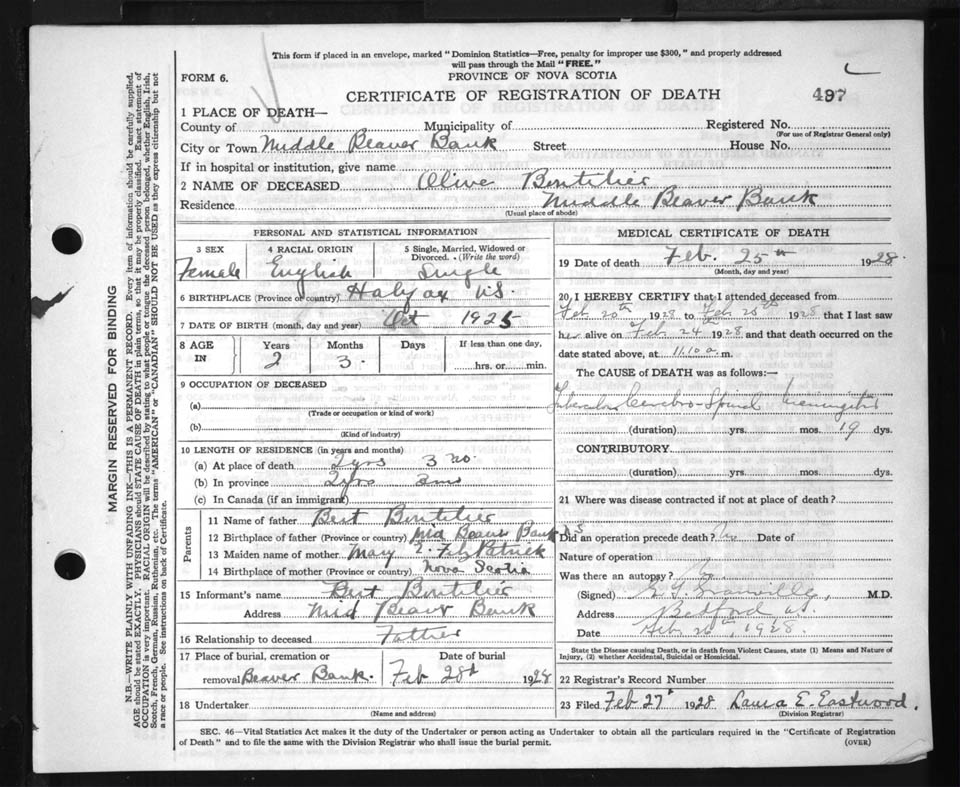 This form if placed in an envelope, marked "Dominion Statistics—Free, penalty for improper use $300," and properly addressed
will pass through the Mail "FREE."
FORM 6.
PROVINCE OF NOVA SCOTIA
CERTIFICATE OF REGISTRATION OF DEATH
497
1 PLACE OF DEATH—
County of Municipality of Registered No.
(For use of Registrar General only)
City or Town Middle Beaver Bank Street House No.
If in hospital or institution, give name
2 NAME OF DECEASED Olive Boutilier
Residence Middle Beaver Bank
(Usual place of abode)
PERSONAL AND STATISTICAL INFORMATION
3 SEX 4 RACIAL ORIGIN 5 Single, Married, Widowed or Divorced. (Write the word)
Female English Single
6 BIRTHPLACE (Province or country) Halifax N.S.
7 DATE OF BIRTH (month, day and year) Oct 1925
8 AGE IN Years Months Days If less than one day,
2 3 hrs. or min.
9 OCCUPATION OF DECEASED
(a)
(Trade or occupation or kind of work)
(b)
(Kind of industry)
10 LENGTH OF RESIDENCE (in years and months)
(a) At place of death 2 yrs 3 mo.
(b) In province 2 yrs 3 mo
(c) In Canada (if an immigrant)
Parents
11 Name of father Bert Boutilier
12 Birthplace of father (Province or country) Mid Beaver Bank N S
13 Maiden name of mother Mary E. FitzPatrick
14 Birthplace of mother (Province or country) Nova Scotia
15 Informant's name Bert Boutilier
Address Mid Beaver Bank
16 Relationship to deceased Father
17 Place of burial, cremation or Date of burial
removal Beaver Bank. Feb 28th 1928
18 Undertaker
(Name and address)
MEDICAL CERTIFICATE OF DEATH
19 Date of death Feb. 25th 1928
(Month, day and year)
20 I HEREBY CERTIFY that I attended deceased from
Feb 20th 1928 to Feb 25th 1928 that I last saw
her alive on Feb 24th 1928 and that death occurred on the
date stated above, at 11.10 a m.
The CAUSE of DEATH was as follows:—
Tubercular Cerebro-Spinal meningitis
(duration) yrs. mos. 19 dys.
CONTRIBUTORY
(duration) yrs. mos. dys.
21 Where was disease contracted if not at place of death?
Did an operation precede death? No Date of
Nature of operation
Was there an autopsy?
(Signed) M.D.
Address Bedford
Date Feb 26th, 1928.
State the Disease causing Death, or in death from Violent Causes, state (1) Means and Nature of
Injury, (2) whether Accidental, Suicidal or Homicidal.
22 Registrar's Record Number
23 Filed Feb 27th 1928 Laura E. Eastwood.
(Division Registrar)
SEC. 46—Vital Statistics Act makes it the duty of the Undertaker or person acting as Undertaker to obtain all the particulars required in the "Certificate of Registration
of Death" and to file the same with the Division Registrar who shall issue the burial permit.
(OVER)
MARGIN RESERVED FOR BINDING
N.B.—WRITE PLAINLY WITH UNFADING INK—THIS IS A PERMANENT RECORD. Every item of information should be carefully supplied.
AGE should be stated EXACTLY. PHYSICIANS should STATE CAUSE OF DEATH in plain terms, so that it may be properly classified. Exact statement of
OCCUPATION is very important. RACIAL ORIGIN will be described by stating to what people or tongue the deceased person belonged, whether English, Irish,
Scotch, French, German, Russian, Ruthenian, etc. The terms "AMERICAN" or "CANADIAN" SHOULD NOT BE USED as they express citizenship but not
a race or people. See instructions on back of Certificate.